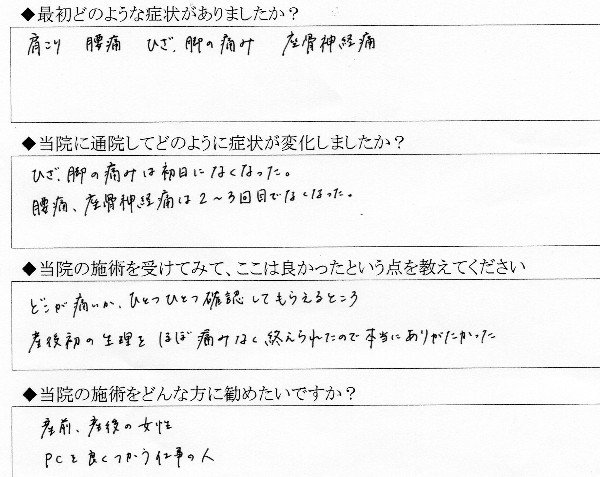 ◆最初どのような症状がありましたか？
肩こり 腰痛 ひざ、脚の痛み 座骨神経痛
◆当院に通院してどのように症状が変化しましたか？
ひざ、脚の痛みは初日になくなった。
腰痛、座骨神経痛は2～3回目でなくなった。
◆当院の施術を受けてみて、ここは良かったという点を教えてください
どこが痛いか、ひとつひとつ確認してもらえるところ
産後初の生理をほぼ痛みなく終えられたので本当にありがたかった
◆当院の施術をどんな方に勧めたいですか？
産前、産後の女性
PCを良くつかう仕事の人